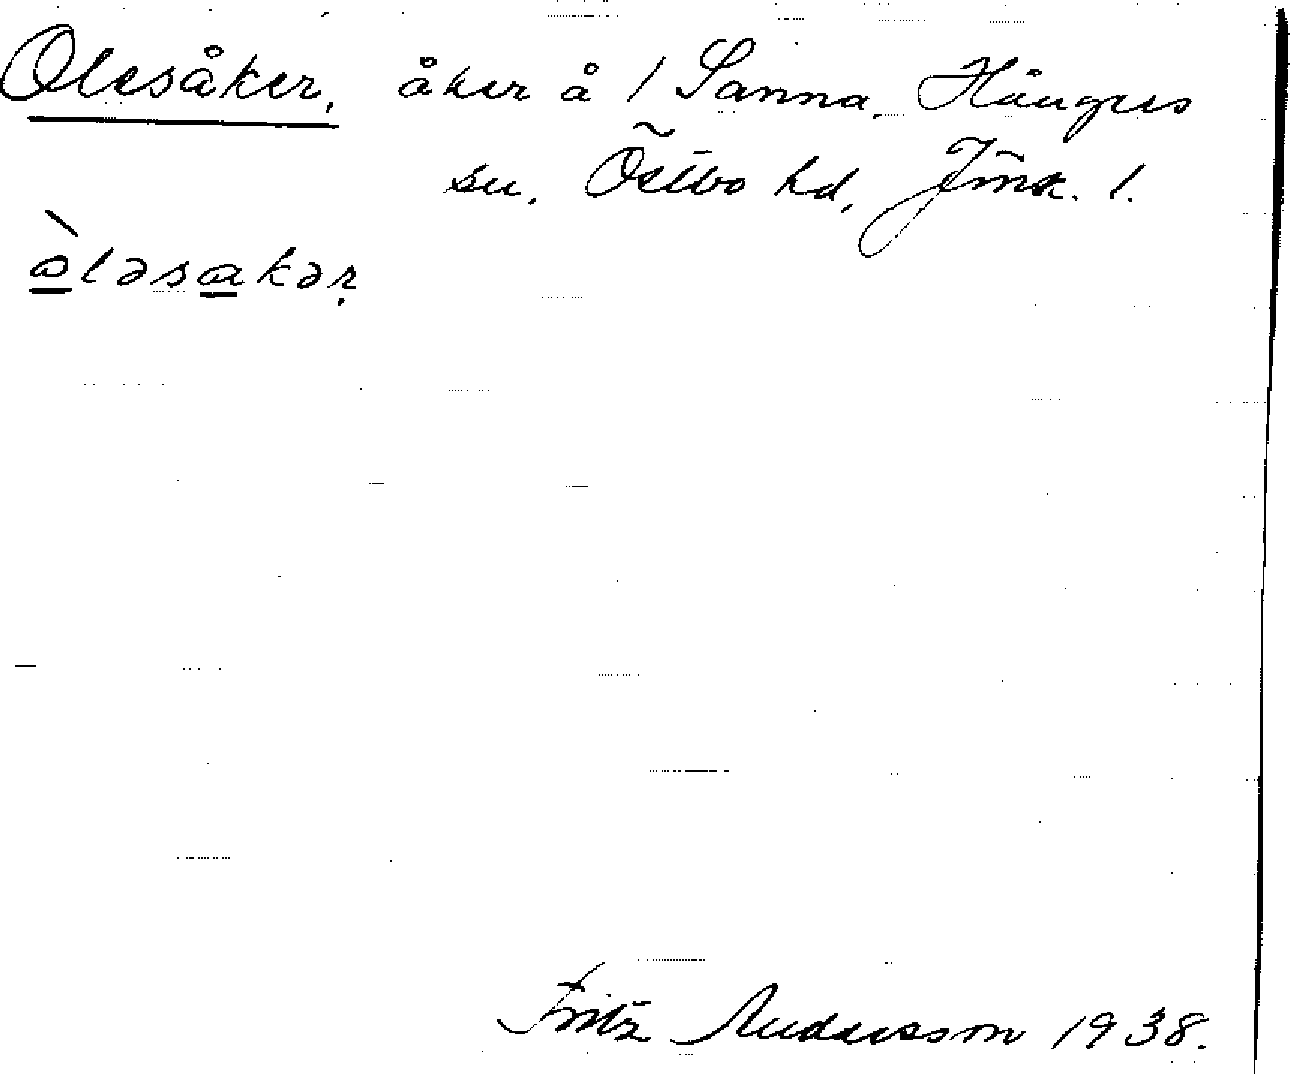 Olesåker, åker å 1 Sanna, Hångers
sn, Östbo hd, Jönk. l.
òləsakər
Fritz Andersson 1938.